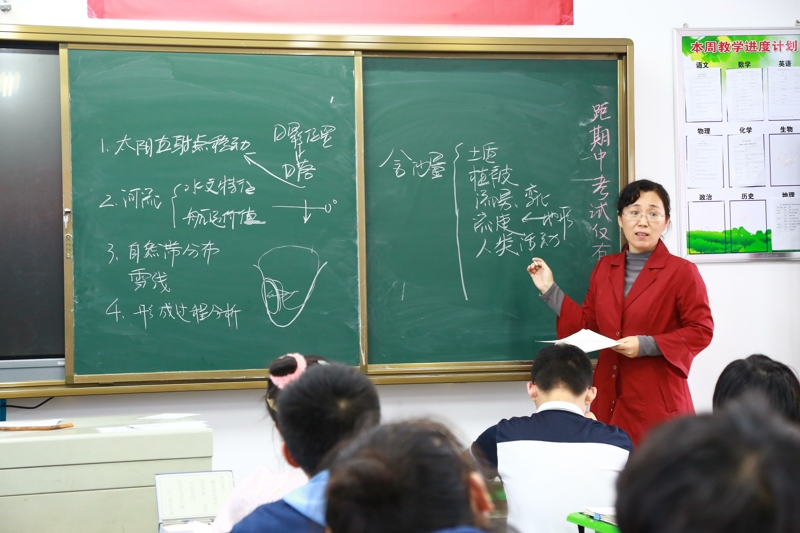 1. 太阳直射点移动
2. 河流 水文特征
航运价值
3. 自然带分布
雪线
4. 形成过程分析
0°
含沙量
土质
植被
流量 变化
流速 ← 地形
人类活动
距期中考试仅有
本周教学进度计划
语文 数学 英语
物理 化学 生物
政治 历史 地理